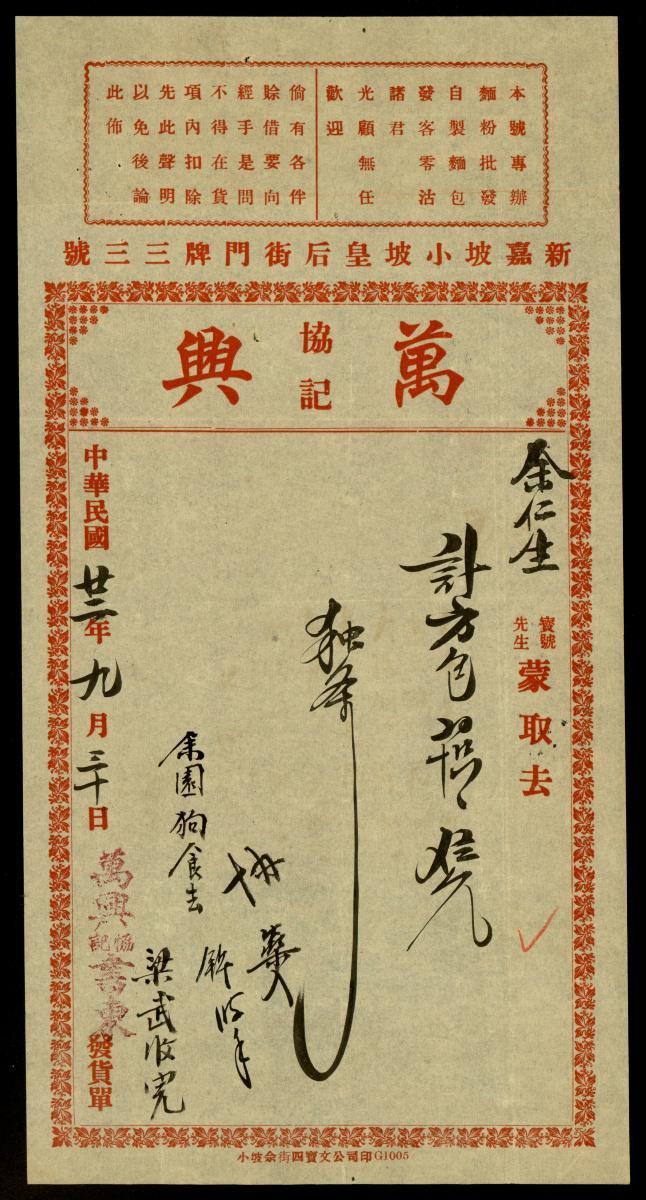 本號專辦
麵粉批發
自製麵包
發客零沽
諸君
光顧無任
歡迎
倘有各伴
賒借要向
經手是問
不得在貨
項內扣除
先此聲明
以免後論
此佈
新嘉坡小坡皇后街門牌三三號
萬興
協記
余仁生
寶號
先生
蒙取去
計方包
余園狗食去
梁武收完
中華民國廿三年九月三十日
萬興協記書柬
發貨單
小坡余街四寶文公司印G1005